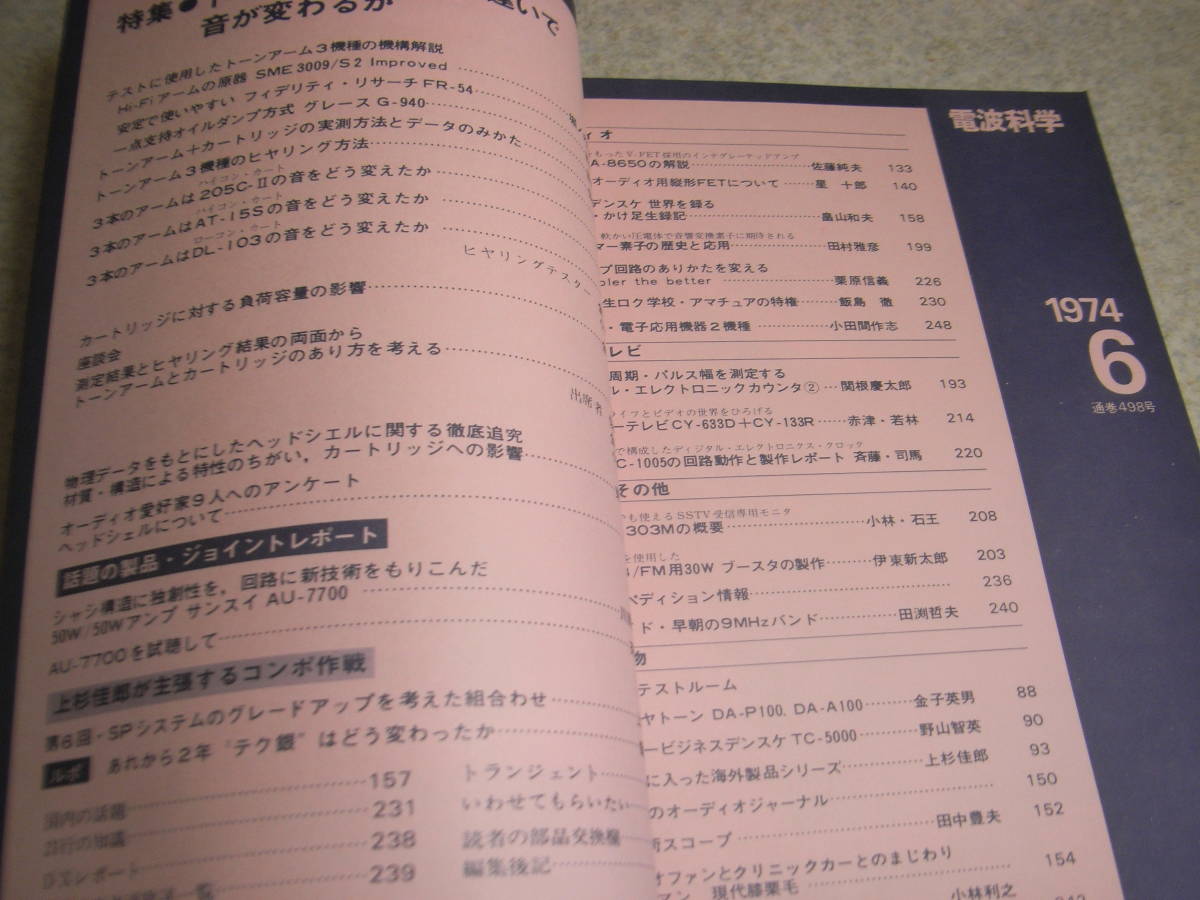 特集●
違いで
音が変わるか
テストに使用したトーンアーム3機種の機構解説
Hi-Fiアームの原器 SME 3009/S2 Improved
安定で使いやすい フィデリティ・リサーチFR-54
一点支持オイルダンプ方式 グレース G-940
トーンアーム+カートリッジの実測方法とデータのみかた
トーンアーム3機種のヒヤリング方法
ハイコン・カート
3本のアームは205C-Ⅱの音をどう変えたか
ハイコン・カート
3本のアームはAT-15Sの音をどう変えたか
ローコン・カート
3本のアームはDL-103の音をどう変えたか
ヒヤリングテスター
カートリッジに対する負荷容量の影響
座談会
測定結果とヒヤリング結果の両面から
トーンアームとカートリッジのあり方を考える
出席者
物理データをもとにしたヘッドシエルに関する徹底追究
材質・構造による特性のちがい,カートリッジへの影響
オーディオ愛好家9人へのアンケート
ヘッドシェルについて
話題の製品・ジョイントレポート
シャシ構造に独創性を,回路に新技術をもりこんだ
50W/50Wアンプ サンスイ AU-7700
AU-7700を試聴して
上杉佳郎が主張するコンポ作戦
第6回・SPシステムのグレードアップを考えた組合わせ
ルポ あれから2年 “テク銀”はどう変わったか
国内の話題 157
231
DXレポート 238
239
トランジェント
いわせてもらいたい
読者の部品交換欄
編集後記
電波科学
1974
6
通巻498号
ィオ
もったV-FET採用のインテグレーテッドアンプ
A-8650の解説 佐藤純夫 133
オーディオ用縦形FETについて 星 十郎 140
デンスケ 世界を録る
・かけ足生録記 畠山和夫 158
軟かい圧電体で音響変換素子に期待される
マー素子の歴史と応用 田村雅彦 199
プ回路のありかたを変える
pler the better 栗原信義 226
生ロク学校・アマチュアの特権 飯島 徹 230
・電子応用機器2機種 小田間作志 248
レビ
周期・パルス幅を測定する
ル・エレクトロニックカウンタ② 関根慶太郎 193
ライフとビデオの世界をひろげる
ーテレビCY-633D+CY-133R 赤津・若林 214
で構成したディジタル・エレクトロニクス・クロック
C-1005の回路動作と製作レポート 斉藤・司馬 220
その他
も使えるSSTV受信専用モニタ
303Mの概要 小林・石王 208
を使用した
/FM用30W ブースタの製作 伊東新太郎 203
ペディション情報 236
ド・早朝の9MHzバンド 田渕哲夫 240
物
テストルーム
ヤトーン DA-P100, DA-A100 金子英男 88
ービジネスデンスケ TC-5000 野山智英 90
に入った海外製品シリーズ 上杉佳郎 93
のオーディオジャーナル 150
術スコープ 田中豊夫 152
オファンとクリニックカーとのまじわり 154
マン 現代膝栗毛 小林利之